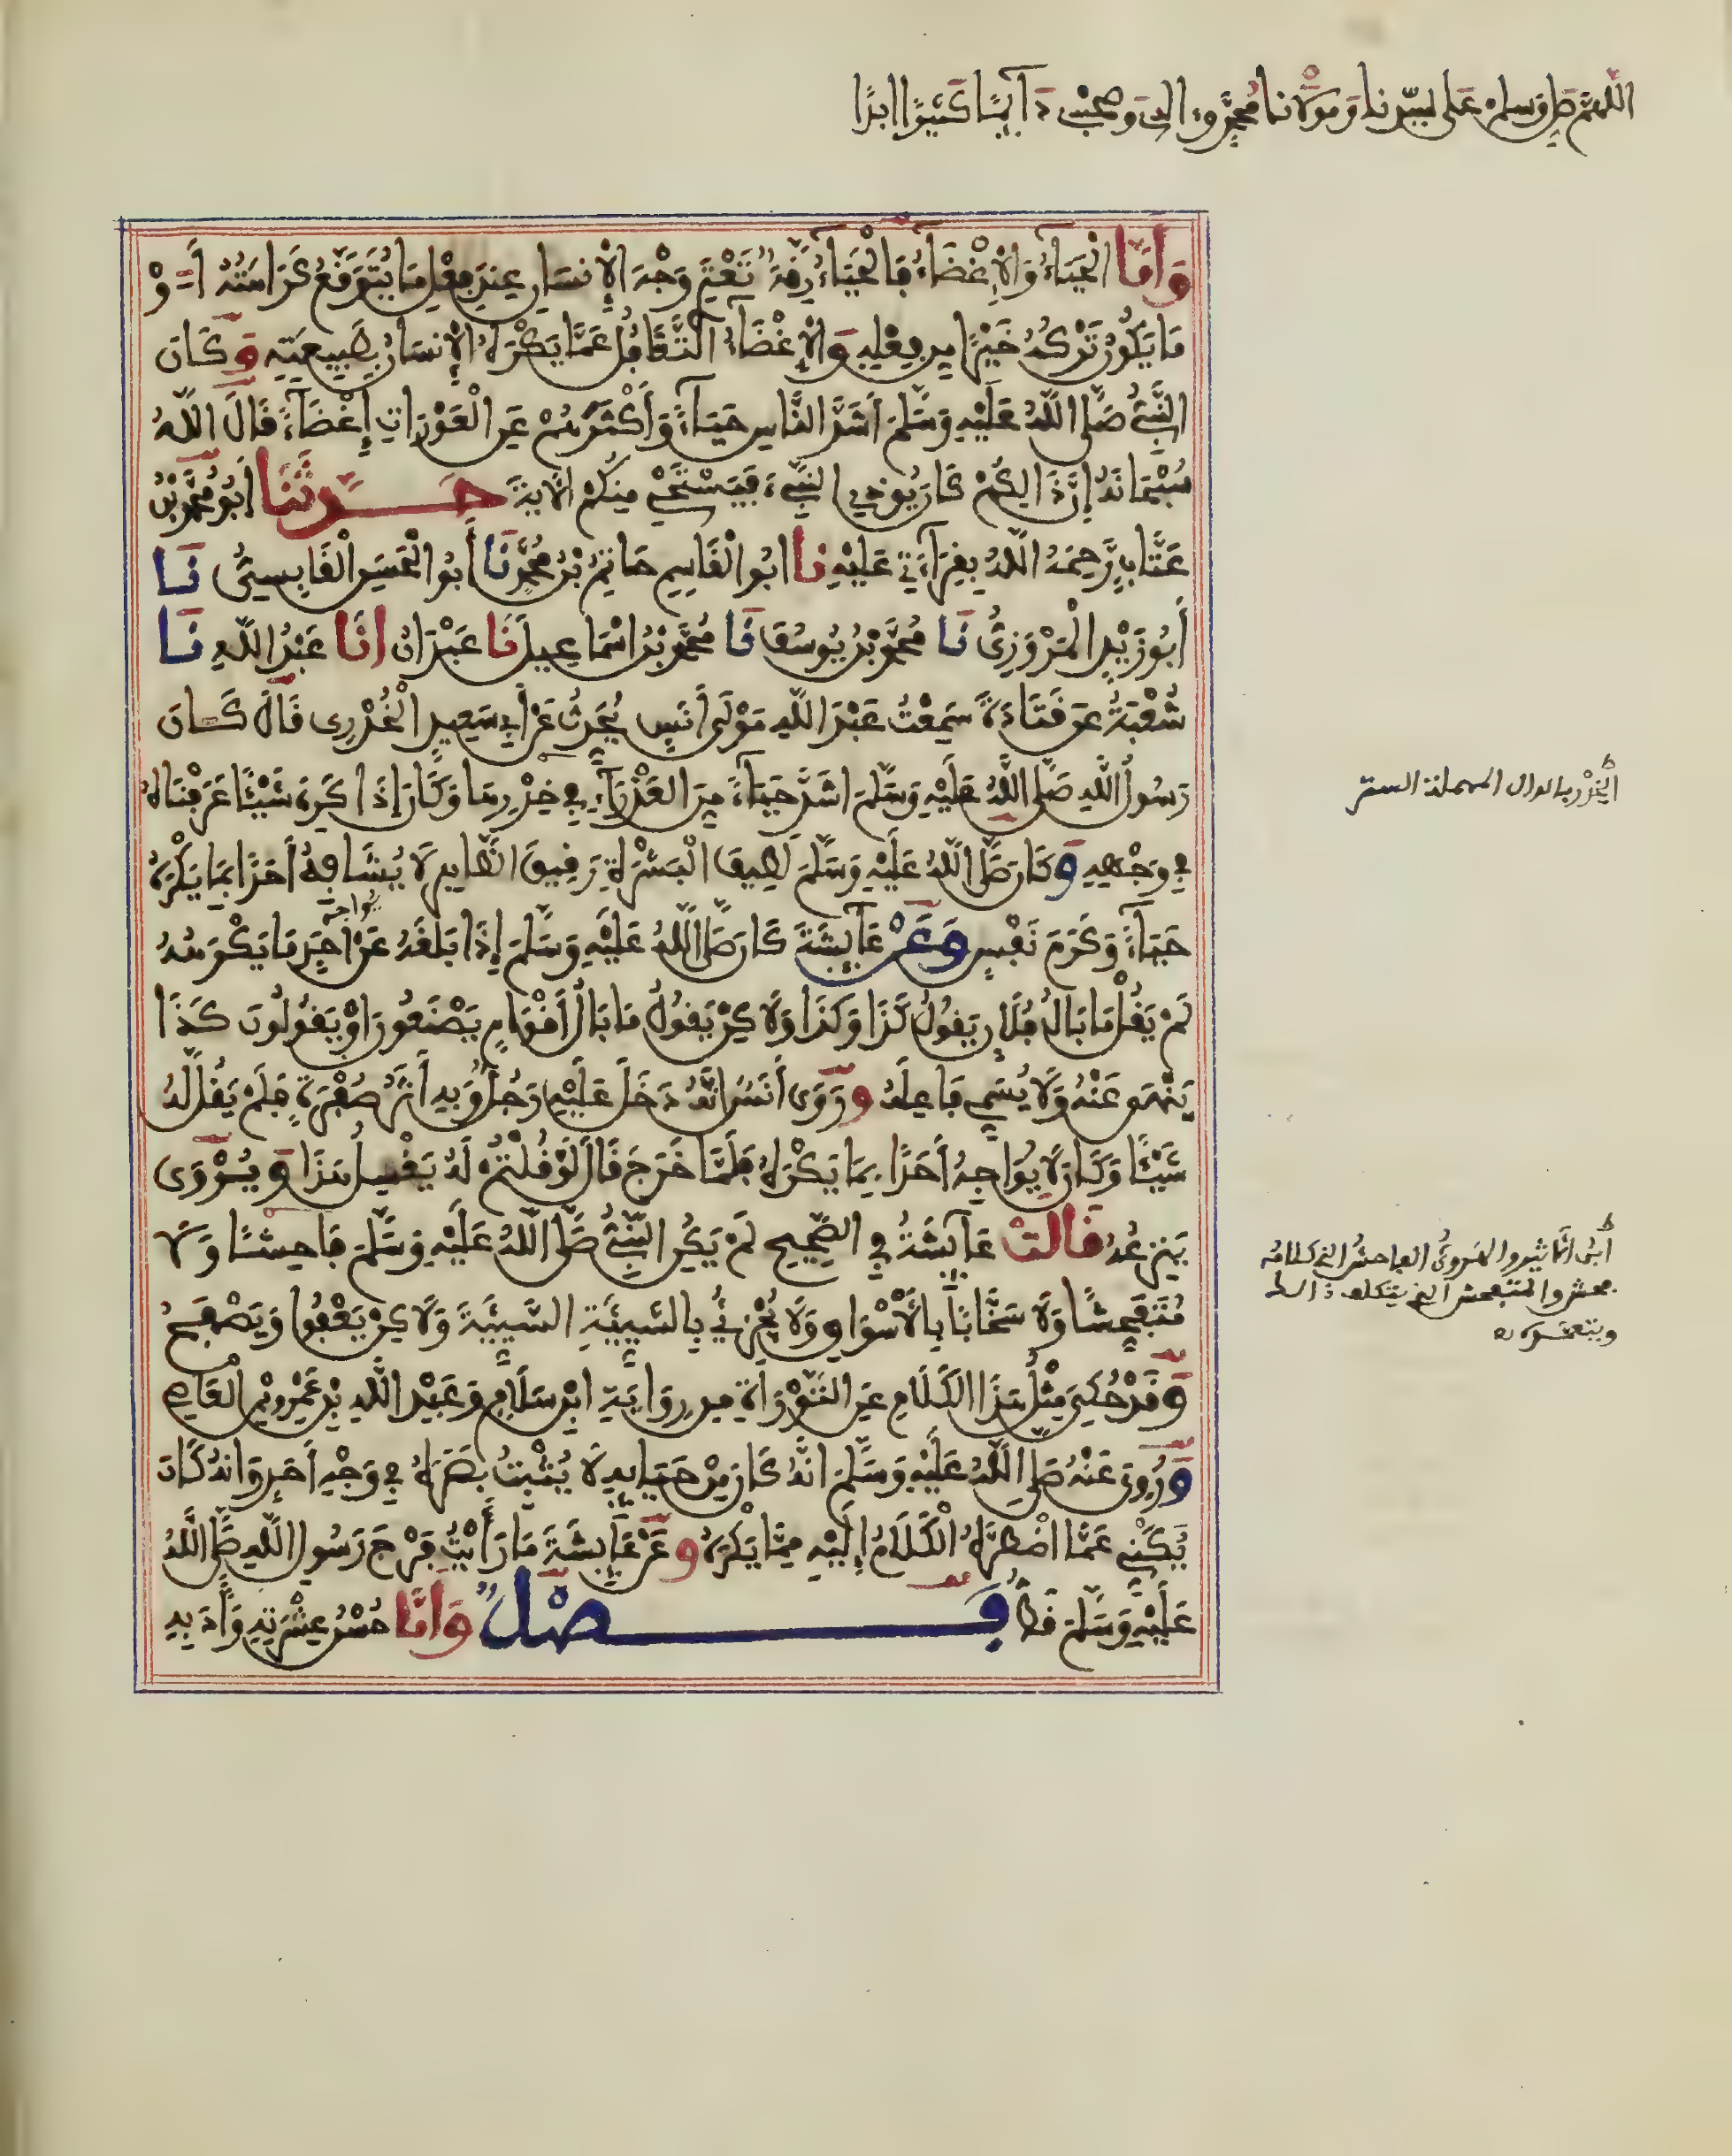 اللهم صل وسلم على سيدنا ومولانا محمد وءاله وصحبه دآيما كثيرا ابدا
وَأَمَّا الْحَيَاءُ وَالْإِغْضَاءُ فَالْحَيَاءُ رِقَّةٌ تَعْتَرِي وَجْهَ الْإِنسَانِ عِندَ فِعْلِ مَا يُتَوَقَّعُ كَرَاهَتُهُ أَوْ
مَا يَكُونُ تَرْكُهُ خَيْرًا مِن فِعْلِهِ وَالْإِغْضَاءُ التَّغَافُلُ عَمَّا يَكْرَهُ الْإِنسَانُ بِطَبِيعَتِهِ وَكَانَ
النَّبِيُّ صَلَّى اللَّهُ عَلَيْهِ وَسَلَّمَ أَشَدَّ النَّاسِ حَيَاءً وَأَكْثَرَهُمْ عَنِ الْعَوْرَاتِ إِغْضَاءً قَالَ اللَّهُ
سُبْحَانَهُ إِنَّ ذَالِكُمْ كَانَ يُوذِي النَّبِيءَ فَيَسْتَحْيِ مِنكُمْ الْآيَةَ حَدَّثَنَا أَبُو مُحَمَّدِ بْنُ
عَتَّابٍ رَّحِمَهُ اللَّهُ بِقِرَاءَتِي عَلَيْهِ نَا أَبُو الْقَاسِمِ حَاتِمُ بْنُ مُحَمَّدٍ نَا أَبُو الْحَسَنِ الْقَابِسِيُّ نَا
أَبُو زَيْدٍ الْمَرْوَزِيُّ نَا مُحَمَّدُ بْنُ يُوسُفَ نَا مُحَمَّدُ بْنُ اسْمَاعِيلَ نَا عَبْدَانُ انَا عَبْدُ اللَّهِ نَا
شُعْبَةُ عَن قَتَادَةَ سَمِعْتُ عَبْدَ اللَّهِ مَوْلَى أَنَسٍ يُحَدِّثُ عَنْ أَبِي سَعِيدٍ الْخُدْرِي قَالَ كَانَ
رَسُولُ اللَّهِ صَلَّى اللَّهُ عَلَيْهِ وَسَلَّمَ أَشَدَّ حَيَاءً مِنَ الْعَذْرَاءِ فِي خِدْرِهَا وَكَانَ إِذَا كَرِهَ شَيْئًا عَرَفْنَاهُ
فِي وَجْهِهِ وَكَانَ صَلَّى اللَّهُ عَلَيْهِ وَسَلَّمَ لَطِيفَ الْبَشَرَةِ رَقِيقَ الظَّاهِرِ لَا يُشَافِهُ أَحَدًا بِمَا يَكْرَهُ
يواجه
حَيَاءً وَكَرَمَ نَفْسٍ وَعَنْ عَائِشَةَ كَانَ صَلَّى اللَّهُ عَلَيْهِ وَسَلَّمَ إِذَا بَلَغَهُ عَنْ أَحَدٍ مَا يَكْرَهُهُ
لَمْ يَقُلْ مَا بَالُ فُلَانٍ يَقُولُ كَذَا وَكَذَا وَلَاكِنْ يَقُولُ مَا بَالُ أَقْوَامٍ يَصْنَعُونَ أَوْ يَقُولُونَ كَذَا
يَنْهَى عَنْهُ وَلَا يُسَمِّي فَاعِلَهُ وَرَوَى أَنَسٌ أَنَّهُ دَخَلَ عَلَيْهِ رَجُلٌ وَبِهِ أَثَرُ صُفْرَةٍ فَلَمْ يَقُل لَّهُ
شَيْئًا وَكَانَ لَا يُوَاجِهُ أَحَدًا بِمَا يَكْرَهُ فَلَمَّا خَرَجَ قَالَ لَوْ قُلْتُمْ لَهُ يَغْسِلُ هَذَا وَيُرْوَى
يَنزِعُهُ قَالَتْ عَائِشَةُ فِي الصَّحِيحِ لَمْ يَكُنِ النَّبِيُّ صَلَّى اللَّهُ عَلَيْهِ وَسَلَّمَ فَاحِشًا وَلَا
مُتَفَحِّشًا وَلَا سَخَّابًا بِالْأَسْوَاقِ وَلَا يُجْزِي بِالسَّيِّئَةِ السَّيِّئَةَ وَلَاكِنْ يَعْفُوا وَيَصْفَحُ
وَقَدْ حُكِيَ مِثْلُ هَذَا الْكَلَامِ عَنِ التَّوْرَاةِ مِن رِوَايَةِ ابْنِ سَلَامٍ وَعَبْدِ اللَّهِ بْنِ عَمْرِو بْنِ الْعَاصِ
وَرُوِيَ عَنْهُ صَلَّى اللَّهُ عَلَيْهِ وَسَلَّمَ أَنَّهُ كَانَ مِنْ حَيَائِهِ لَا يُثْبِتُ بَصَرَهُ فِي وَجْهِ أَحَدٍ وَانَّهُ كَانَ
يُكَنِّي عَمَّا اضْطَرَّهُ الْكَلَامُ إِلَيْهِ مِمَّا يَكْرَهُ وَعَنْ عَائِشَةَ مَا رَأَيْتُ فَرْجَ رَسُولِ اللَّهِ صَلَّى اللَّهُ
عَلَيْهِ وَسَلَّمَ قَطُّ فَصْلٌ وَأَمَّا حُسْنُ عِشْرَتِهِ وَأَدَبِهِ
الخدر بالدال المهملة الستر
ابن الاثير والهروي الفاحش الذي كلامه
فحش والمتفحش الذي يتكلف ذالك
ويتعمده